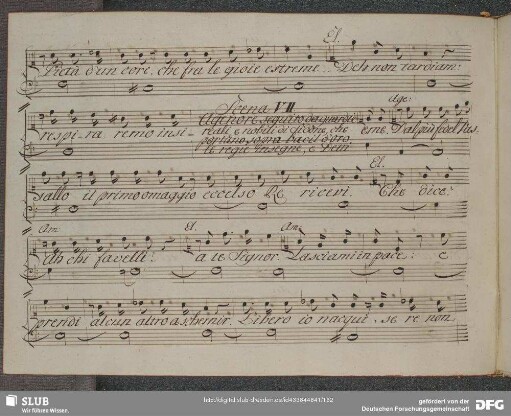 El.
Pietà d'un core, che fra le gioie estreme... Deh non tardiam:
Scena VII
Agenore seguito da guardie
reali, e nobili di Sidone, che
portano sopra bacili d'oro
le regie insegne, e detti
Age:
respi_ra remo insi_ eme. Dal più fedel Vas
El.
sallo il primo omaggio eccelso Re ricevi. Che dice?
Am El. Am
Ah chi favelli? a te Signor. Lasciami in pace: e
prendi alcun altro a schernir. Libero io nacqui, se re non
SLUB
Wir führen Wissen.
http://digital.slub-dresden.de/id433644641/162
gefördert von der
Deutschen Forschungsgemeinschaft
DFG